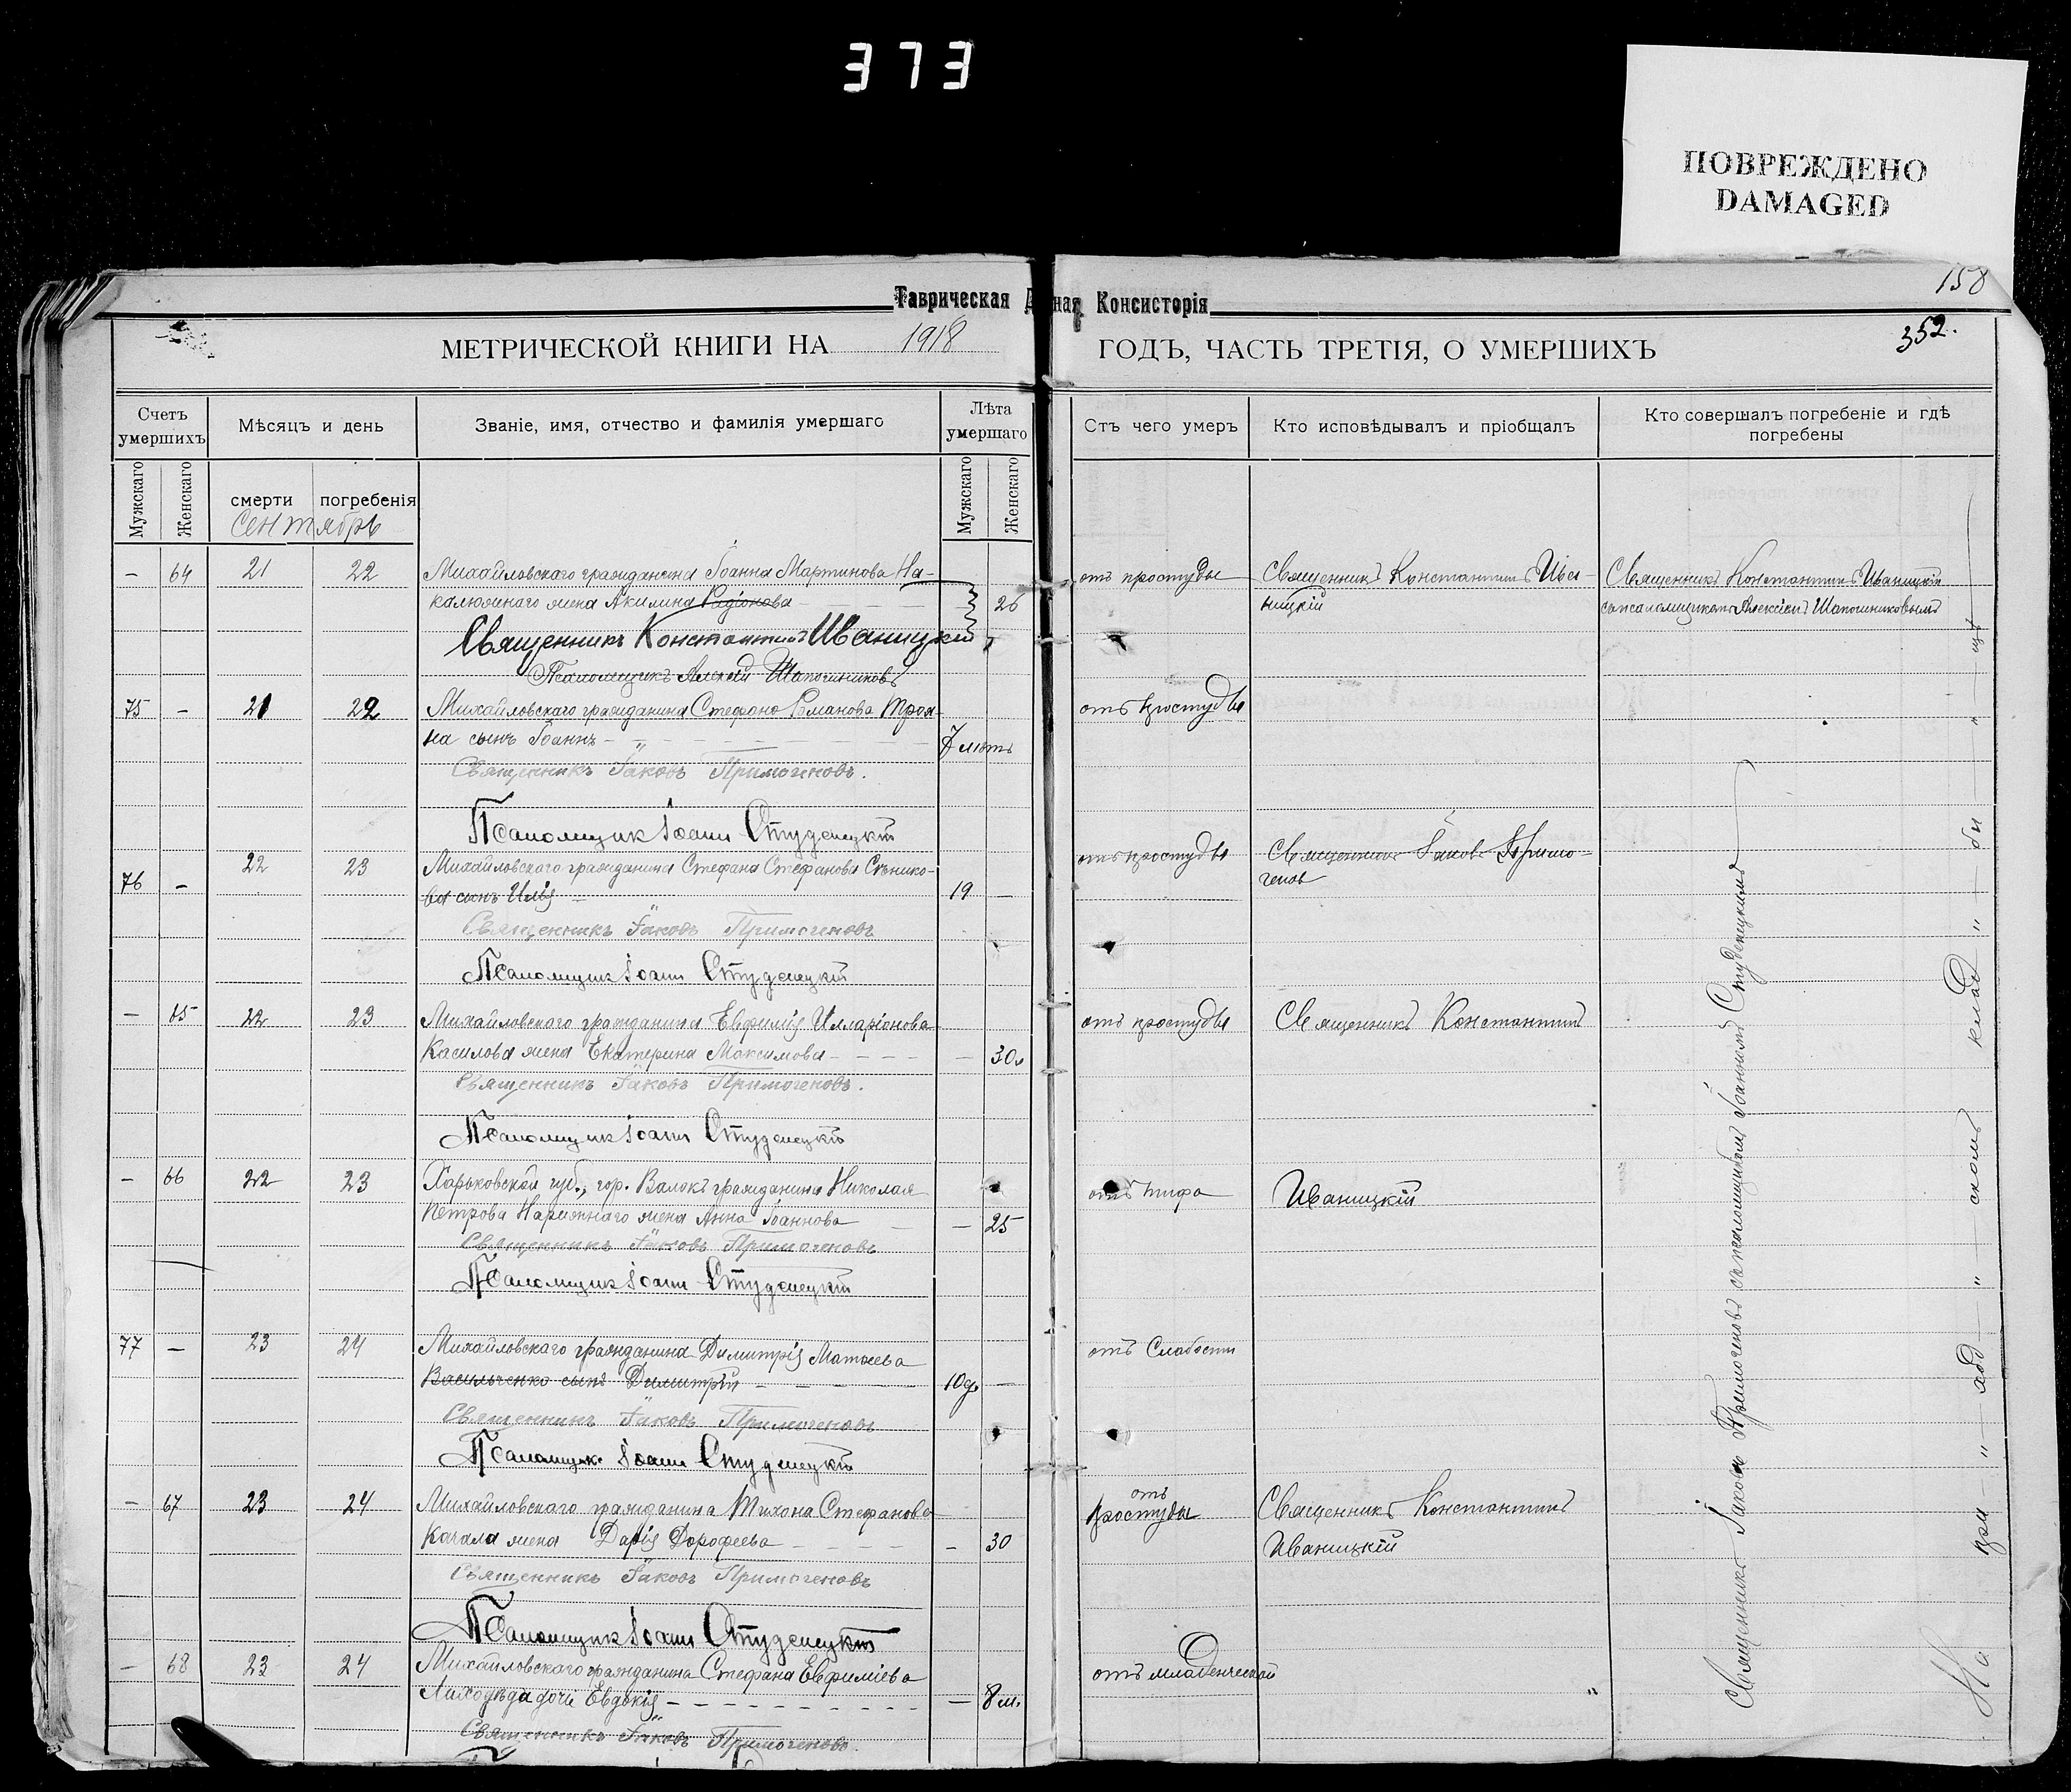 373
ПОВРЕЖДЕНО
DAMAGED
158
Таврическая Д ная Консисторія
352.
МЕТРИЧЕСКОЙ КНИГИ НА 1918 ГОДЪ, ЧАСТЬ ТРЕТІЯ, О УМЕРШИХЪ
Счетъ умершихъ
Мѣсяцъ и день
Званіе, имя, отчество и фамилія умершаго
Лѣта умершаго
Отъ чего умеръ
Кто исповѣдывалъ и пріобщалъ
Кто совершалъ погребеніе и гдѣ погребены
Мужскаго Женскаго смерти погребенія Мужскаго Женскаго
Сентябрь
— 64 21 22 Михайловскаго гражданина Іоанна Мартинова На- отъ простуды Священникъ Константинъ Ива- Священникъ Константинъ Иваницкій
калюжнаго жена Акилина Радіонова 26 ницкій съ псаломщикомъ Алексіемъ Шапошниковымъ
Священникъ Константинъ Иваницкій
Псаломщикъ Алексѣй Шапошниковъ
75 — 21 22 Михайловскаго гражданина Стефана Романова Троя- отъ простуды
на сынъ Іоаннъ 7 лѣтъ
Священникъ Іаковъ Примогеновъ.
Псаломщикъ Іоаннъ Студенецкій
76 — 22 23 Михайловскаго гражданина Стефана Стефанова отъ простуды Священникъ Іаковъ Примо-
ва сынъ Илія 19 — геновъ
Священникъ Іаковъ Примогеновъ
Псаломщикъ Іоаннъ Студенецкій
— 65 22 23 Михайловскаго гражданина Евфимія Илларіонова отъ простуды Священникъ Константинъ
Касилова жена Екатерина Максимова — 30л
Священникъ Іаковъ Примогеновъ.
Псаломщикъ Іоаннъ Студенецкій
— 66 22 23 Харьковской губ., гор. Валокъ гражданина Николая отъ тифа Иваницкій
Петрова Нарижнаго жена Анна Іоаннова — 25
Священникъ Іаковъ Примогеновъ
Псаломщикъ Іоаннъ Студенецкій
77 — 23 24 Михайловскаго гражданина Димитрія Матѳеева отъ Слабости
Васильченко сынъ Димитрій 10д. —
Священникъ Іаковъ Примогеновъ
Псаломщикъ Іоаннъ Студенецкій
— 67 23 24 Михайловскаго гражданина Тихона Стефанова отъ простуды Священникъ Константинъ
Качала жена Дарія Дорофеева — 30 Иваницкій
Священникъ Іаковъ Примогеновъ
Псаломщикъ Іоаннъ Студенецкій
— 68 23 24 Михайловскаго гражданина Стефана Евфиміева отъ младенческой
дочь Евдокія — 8 м.
Священникъ Іаковъ Примогеновъ.
Священникъ Іаковъ Примогеновъ съ псаломщикомъ Іоанномъ Студенецкимъ
На при — " — ход — " — скомъ клад — " — би — " — щѣ